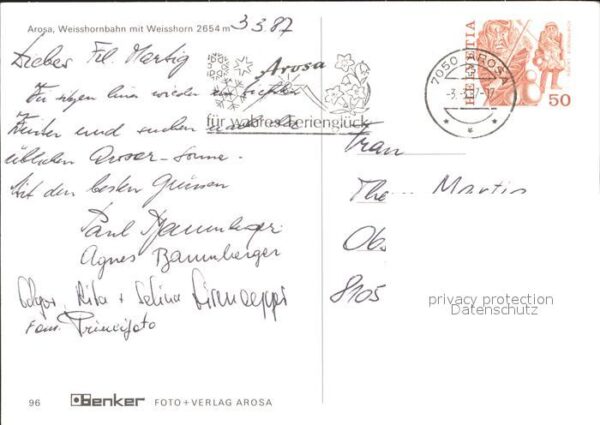 Arosa, Weisshornbahn mit Weisshorn 2654 m
3.3.87
Liebes Frl. Martig
Wir sitzen hier wieder im
Winter und suchen nach der
üblichen Aroser-Sonne.
Mit den besten Grüssen
Paul Bammberger
Agnes Bammberger
Edgar, Rita + Selina
Fam. Principato
Arosa
für wahres Ferienglück
7050 AROSA
-3.-3.87-17
HELVETIA
50
Frau
The Martin
Obs
8105
privacy protection
Datenschutz
96
Benker FOTO+VERLAG AROSA